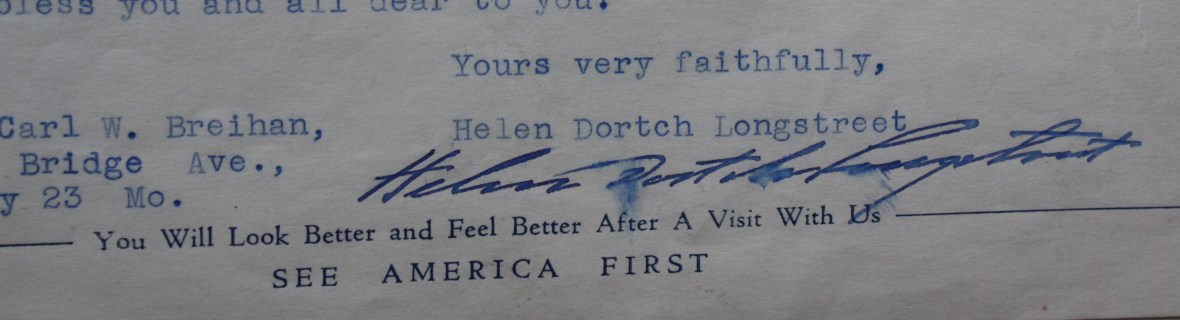 bless you and all dear to you.
Yours very faithfully,
Carl W. Breihan,
Helen Dortch Longstreet
Bridge Ave.,
Helen Dortch Longstreet
y 23 Mo.
You Will Look Better and Feel Better After A Visit With Us
SEE AMERICA FIRST